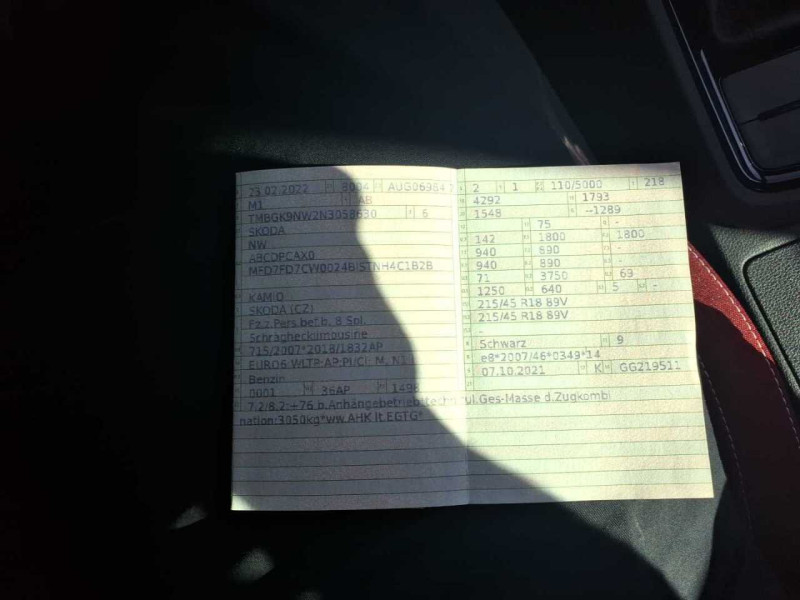 23.02.2022 8004 AUG06984 2
M1 AB
TMBGK9NW2N3058630 6
SKODA
NW
ABCDPCAX0
MFD7FD7CW0024BISTNH4C1B2B
KAMIQ
SKODA (CZ)
Fz.z.Pers.bef.b. 8 Spl.
Schräghecklimousine
715/2007*2018/1832AP
EURO6;WLTP;AP;PI/CI; M, N1 I
Benzin
0001 36AP 1498
7.2/8.2:+76 b.Anhängebetrieb*
nation:3050kg*ww.AHK lt.EGTG*
2 1 110/5000 218
4292 1793
1548 -1289
75 -
142 1800 1800
940 890 -
940 890 -
71 3750 69
1250 640 5 -
215/45 R18 89V
215/45 R18 89V
-
Schwarz 9
e8*2007/46*0349*14
07.10.2021 K GG219511
zul.Ges-Masse d.Zugkombi